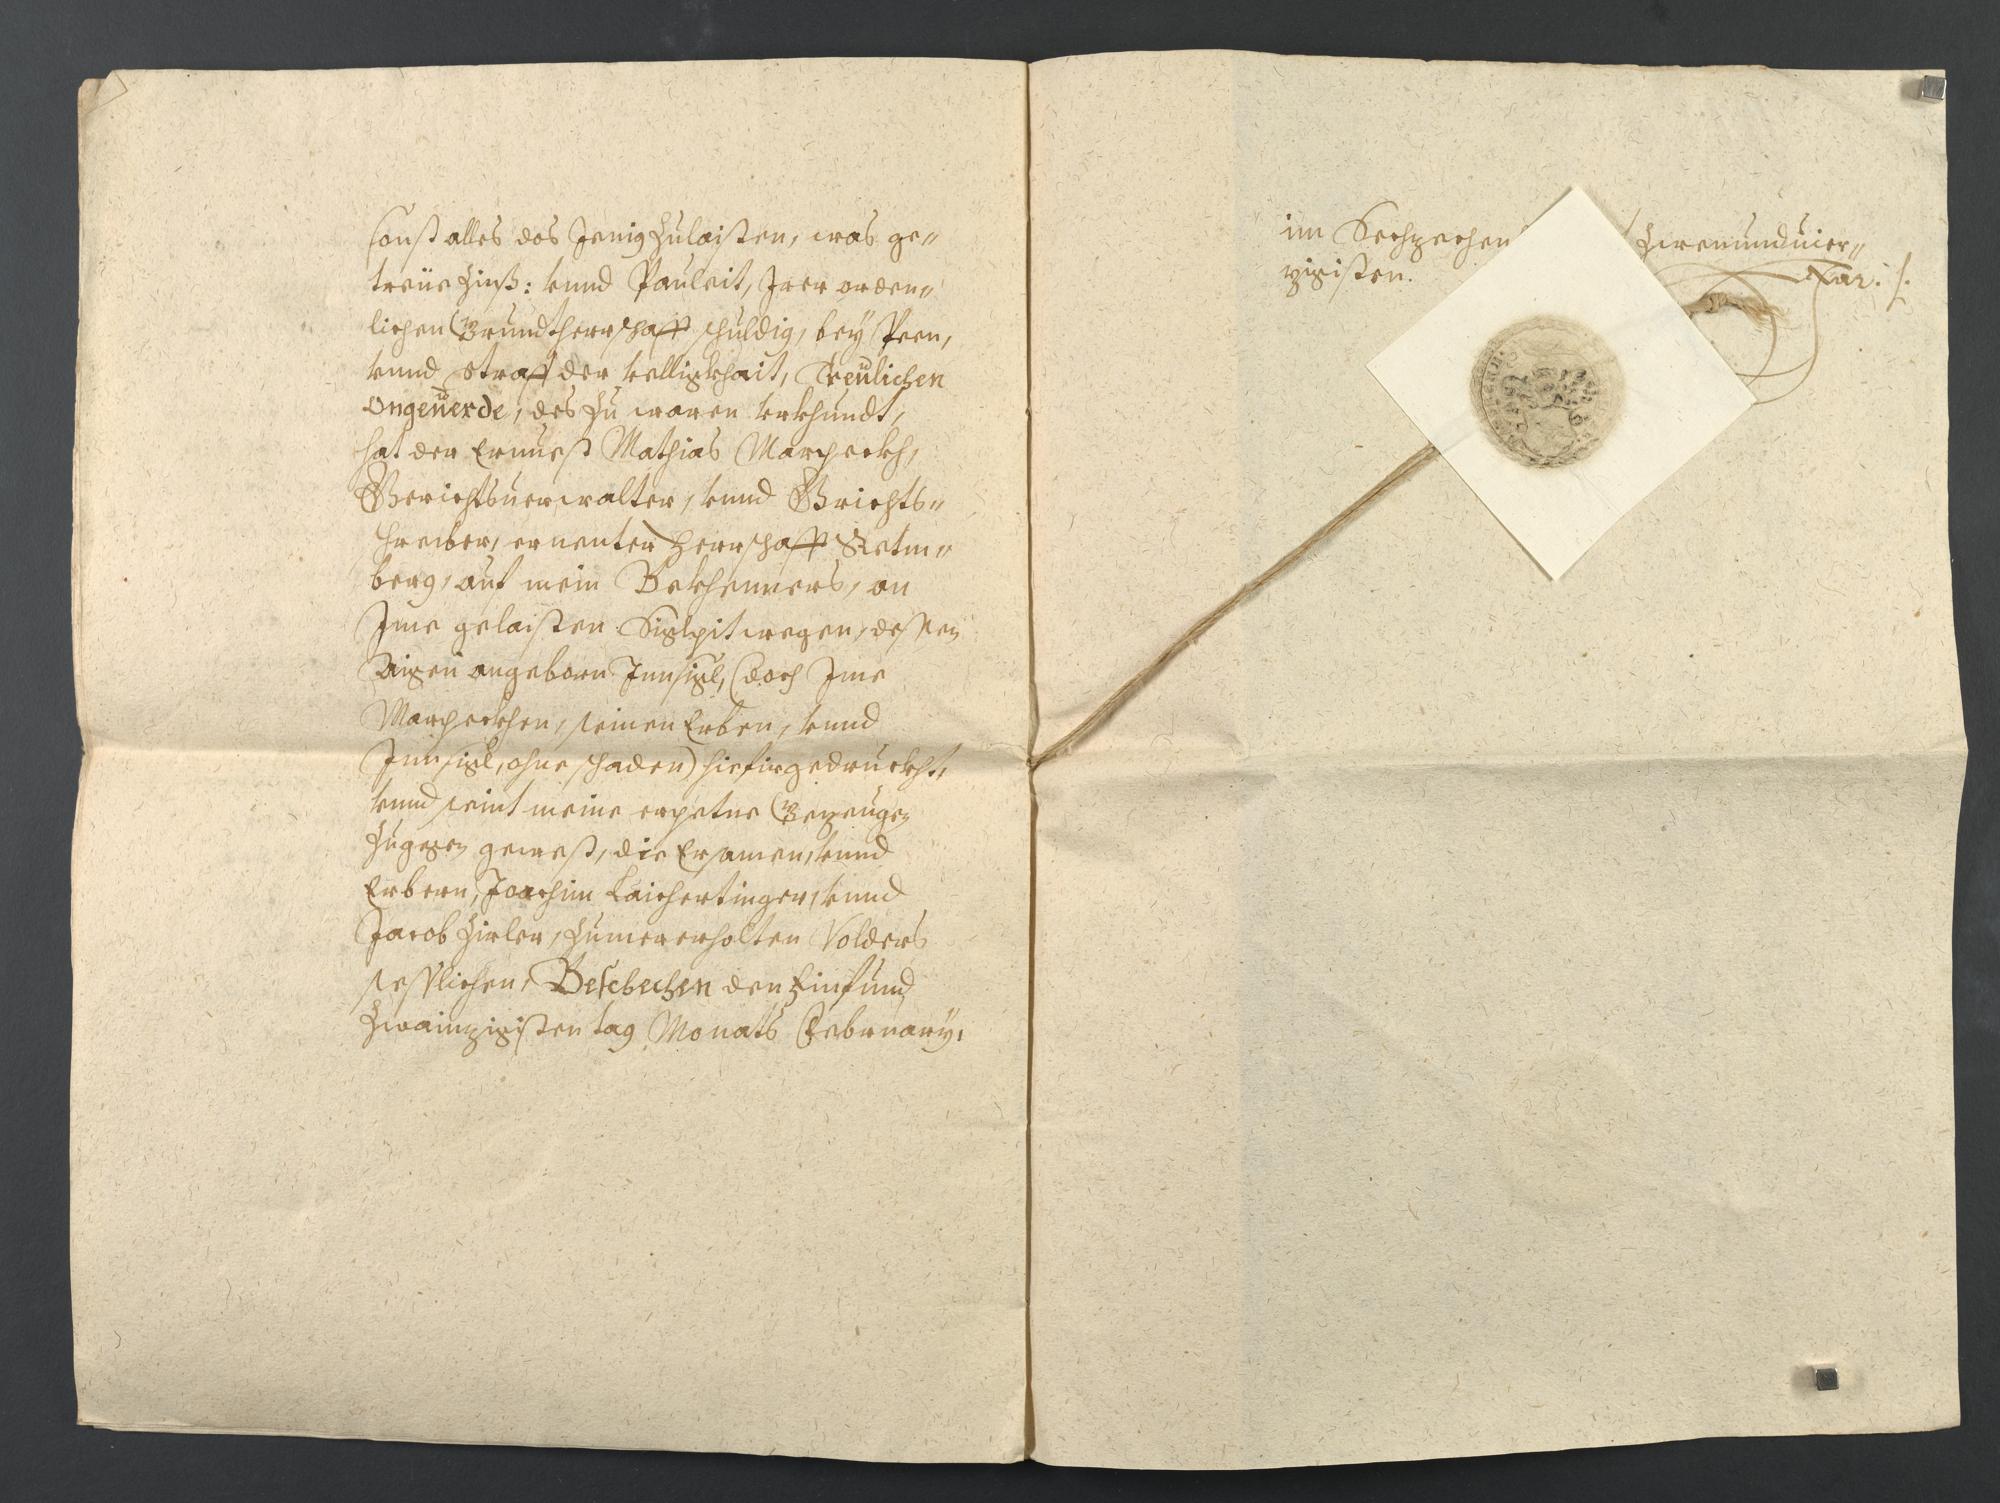 sonst alles das Jenig zulaisten, was ge=
treüe Zinß: vnnd Pauleit, Irer orden=
lichen Grundtherrschafft schuldig, bey Peen,
vnnd straff der velligkhait, Treulichen
Ongeuerde, des zu waren vrkhundt,
hat der Ernuest Mathias Marpeckh,
Gerichtsuerwalter, vnnd Grichts=
schreiber, ernenter Herrschafft Retm=
berg, auf mein Bekhenners, an
Ime gelaisten Siglpit wegen, dessen
Aigen angeborn Innsigl, (doch Ime
Marpeckhen, seinen Erben, vnnd
Innsigl, ohne schaden) hiefürgedruckht,
vnnd seint meine erpetne Gezeugen
Zugegen gewest, die Ersamen, vnnd
Erbern, Joachim Laichertinger, vnnd
Jacob Hirler, zu mererholten Volders
sesslichen, Beschechen den Einfund
Zwainzigisten tag Monats February,
im Sechzechen Zwenundvier=
zigisten. Jar. /.